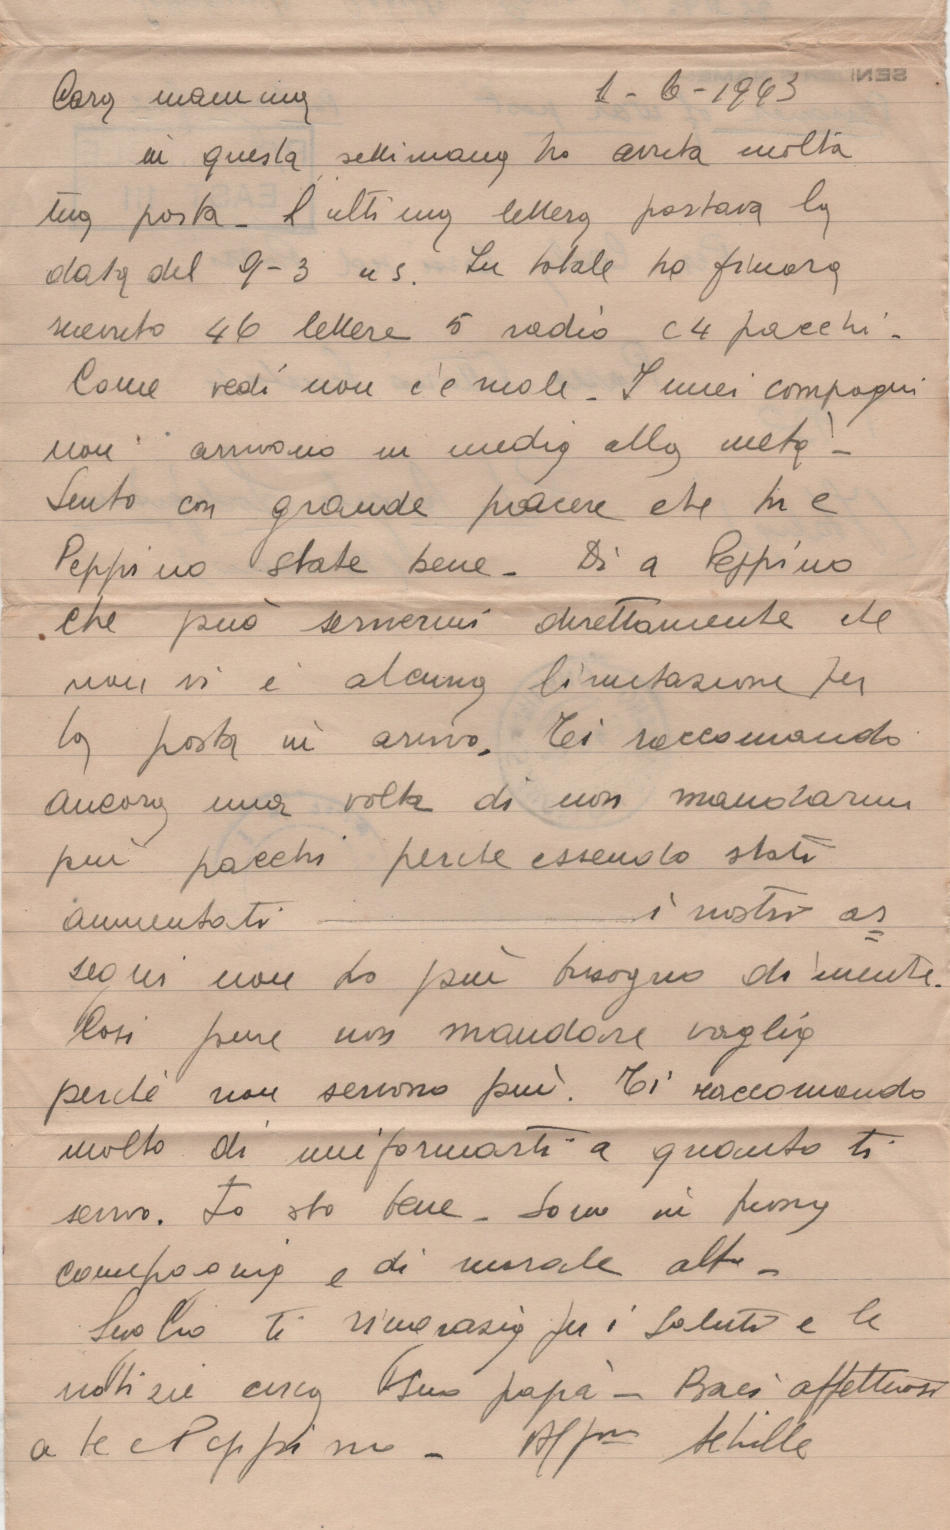 Cara mamma 1-6-1943
in questa settimana ho avuta molta
tua posta - L'ultima lettera portava la
data del 9-3 u s. In totale ho finora
ricevuto 46 lettere 5 radio e 4 pacchi -
Come vedi non c'è male - I miei compagni
non arrivano in media alla metà -
Sento con grande piacere che tu e
Peppino state bene - Di a Peppino
che può scrivermi direttamente che
non vi è alcuna limitazione per
la posta in arrivo. Ti raccomando
ancora una volta di non mandarmi
più pacchi perche essendo stati
aumentati i nostri as
segni non ho più bisogno di niente.
Così pure non mandare vaglia
perchè non servono più. Ti raccomando
molto di uniformarti a quanto ti
scrivo. Io sto bene - Sono in buona
compagnia e di morale alto -
ti ringrazia per i saluti e le
notizie circa suo papà - Baci affettuosi
a te e Peppino - Achille
SEN
EAS